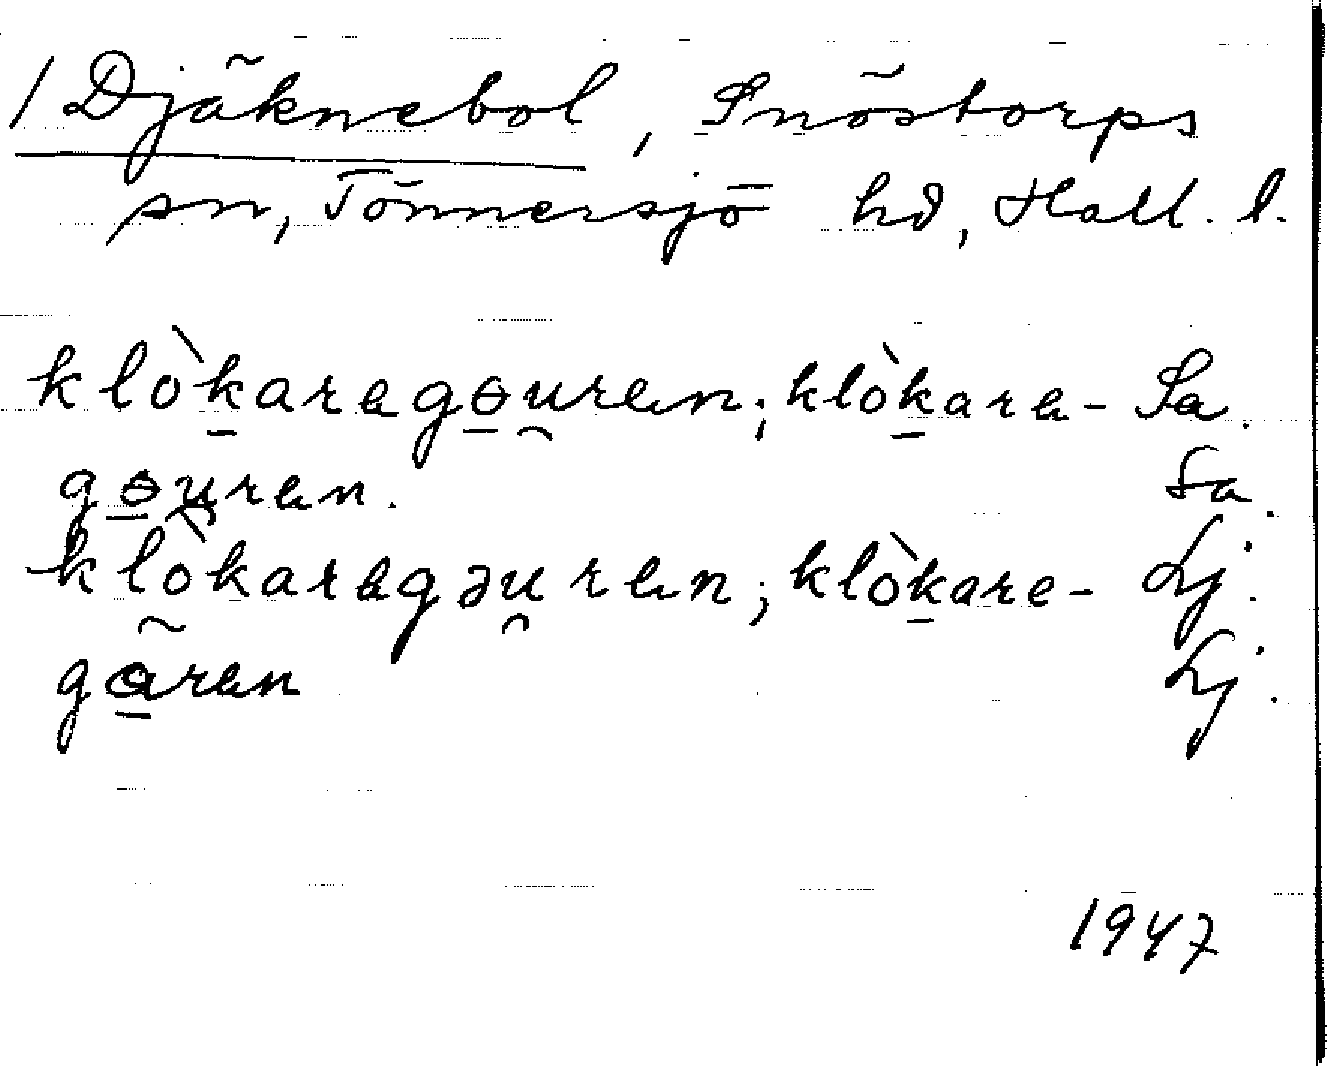 / Djäknebol, Snöstorps
sn, Tönnersjö hd, Hall. l.
klòk̠arag̱ɵu̯ren; klòk̠ara- Sa.
gɵ̠u̯ren. Sa.
klòkaragəu̯ren; klòk̠are- Lj.
gã̠ren Lj.
1947